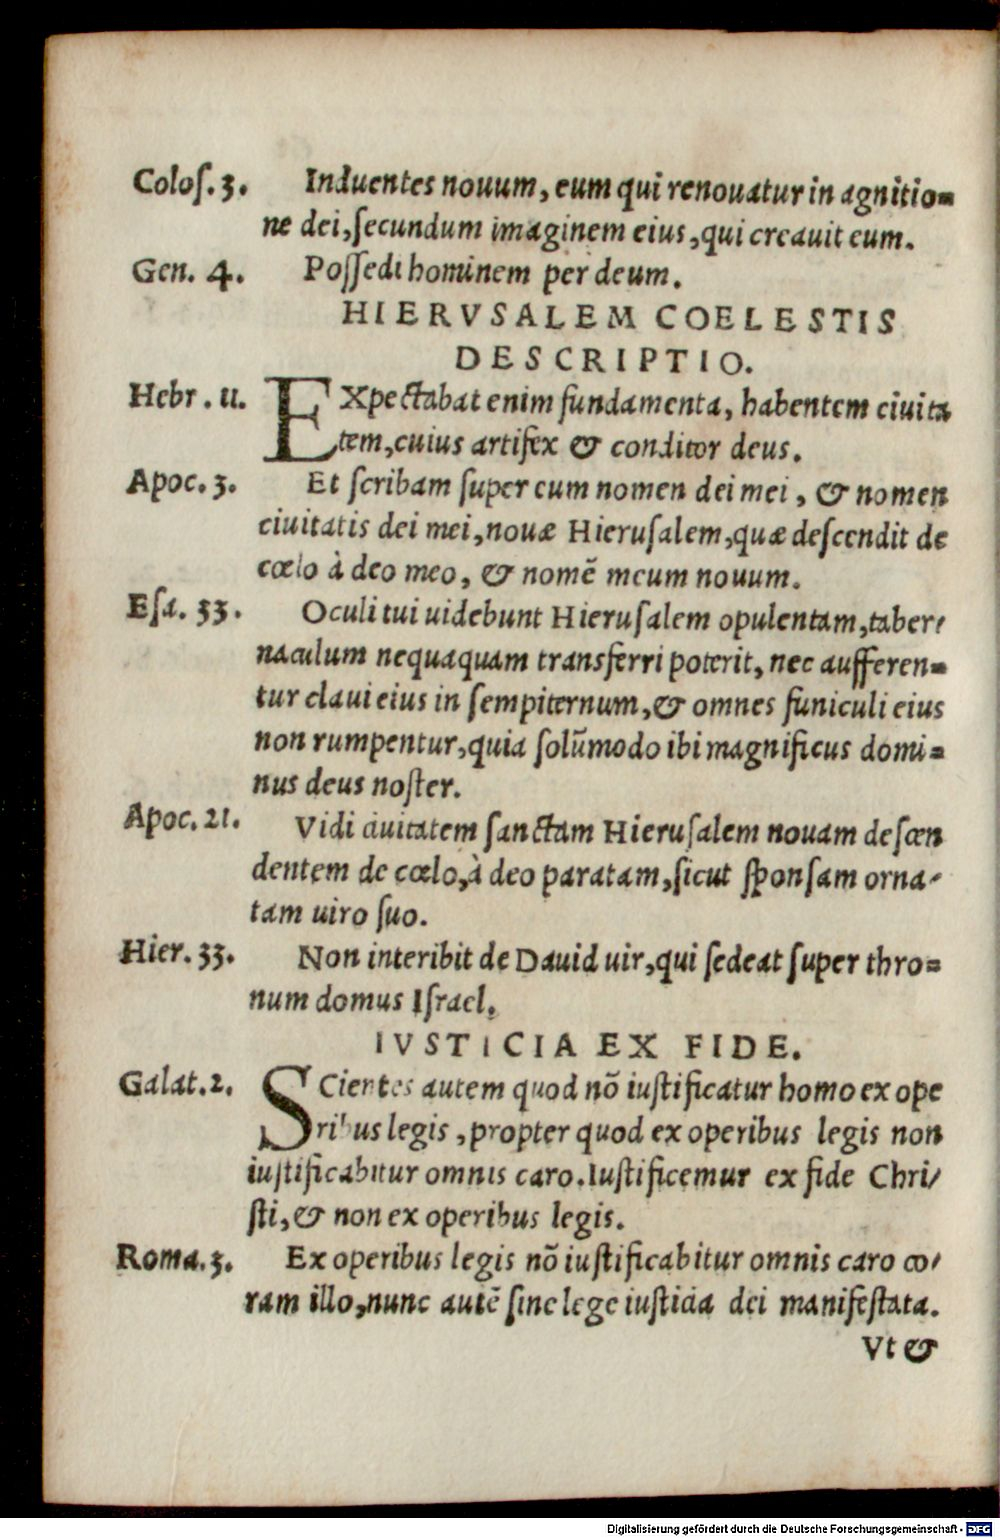 Coloſ. 3. Induentes nouum, eum qui renouatur in agnitio=
ne dei, ſecundum imaginem eius, qui creauit eum.
Gen. 4. Poſſedi hominem per deum.
HIERVSALEM COELESTIS
DESCRIPTIO.
Hebr. 11. EXpectabat enim fundamenta, habentem ciuita
tem, cuius artifex & conditor deus.
Apoc. 3. Et ſcribam ſuper eum nomen dei mei, & nomen
ciuitatis dei mei, nouæ Hieruſalem, quæ deſcendit de
cœlo à deo meo, & nomē meum nouum.
Eſa. 33. Oculi tui uidebunt Hieruſalem opulentam, taber/
naculum nequaquam transferri poterit, nec aufferen=
tur claui eius in ſempiternum, & omnes funiculi eius
non rumpentur, quia ſolūmodo ibi magnificus domi=
nus deus noſter.
Apoc. 21. Vidi ciuitatem ſanctam Hieruſalem nouam deſcen
dentem de cœlo, à deo paratam, ſicut ſponſam orna/
tam uiro ſuo.
Hier. 33. Non interibit de Dauid uir, qui ſedeat ſuper thro=
num domus Iſrael.
IVSTICIA EX FIDE.
Galat. 2. SCientes autem quod nō iuſtificatur homo ex ope
ribus legis, propter quod ex operibus legis non
iuſtificabitur omnis caro. Iuſtificemur ex fide Chri/
ſti, & non ex operibus legis.
Roma. 3. Ex operibus legis nō iuſtificabitur omnis caro co/
ram illo, nunc autē ſine lege iuſticia dei manifeſtata.
Vt &
Digitalisierung gefördert durch die Deutsche Forschungsgemeinschaft - DFG